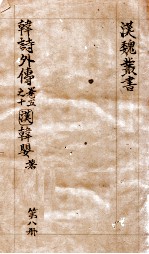 漢魏叢書
韓詩外傳 卷五之十 漢韓嬰著
第八册